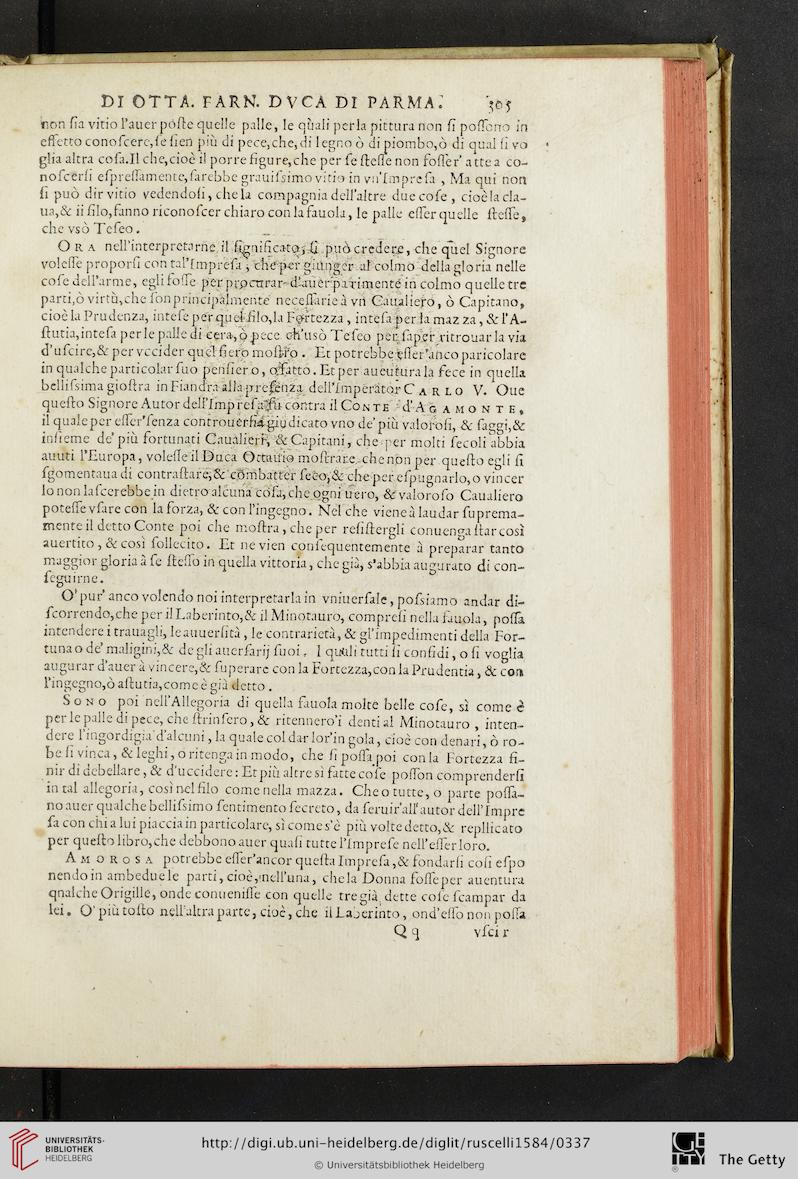 DI OTTA. FARN. DVCA DI PARMA. 305
non ſia vitio l'auer poſte quelle palle, le quali per la pittura non ſi poſſono in
effetto conoſcere, ſe ſien più di pece, che, di legno ò di piombo, ò di qual ſi vo
glia altra coſa. Il che, cioè il porre figure, che per ſe ſteſſe non foſſer' atte a co-
noſcerſi eſpreſſamente, ſarebbe grauiſsimo vitio in vn'Impreſa, Ma qui non
ſi può dir vitio vedendoſi, che la compagnia dell'altre due coſe, cioè la cla-
ua, & il filo, fanno riconoſcer chiaro con la fauola, le palle eſſer quelle ſteſſe,
che vsò Teſeo.
ORA nell'interpretarne il ſignificato, ſi può credere, che quel Signore
voleſſe proporſi con tal'Impreſa, che per giunger al colmo della gloria nelle
coſe dell'arme, egli foſſe per procurar d'auer parimente in colmo quelle tre
parti, ò virtù, che ſon principalmente neceſſarie à vn Caualiero, ò Capitano,
cioè la Prudenza, inteſe per quel filo, la Fortezza, inteſa per la mazza, & l'A-
ſtutia, inteſa per le palle di cera, ò pece ch'usò Teſeo per ſaper ritrouar la via
d'uſcire, & per vccider quel fiero moſtro. Et potrebbe eſſer'anco paricolare
in qualche particolar ſuo penſiero, o fatto. Et per auentura la fece in quella
belliſsima gioſtra in Fiandra alla preſenza dell'Imperator CARLO V. Oue
queſto Signore Autor dell'Impreſa fu contra il CONTE d'AGAMONTE,
il quale per eſſer'ſenza controuerſia giudicato vno de' più valoroſi, & ſaggi, &
inſieme de' più fortunati Caualieri, & Capitani, che per molti ſecoli abbia
auuti l'Europa, voleſſe il Duca Ottauio moſtrare che non per queſto egli ſi
ſgomentaua di contraſtare, & combatter ſeco, & che per eſpugnarlo, o vincer
lo non laſcerebbe in dietro alcuna coſa, che ogni uero, & valoroſo Caualiero
poteſſe vſare con la forza, & con l'ingegno. Nel che viene à laudar ſuprema-
mente il detto Conte poi che moſtra, che per reſiſtergli conuenga ſtar così
auertito, & così ſollecito. Et ne vien conſequentemente à preparar tanto
maggior gloria à ſe ſteſſo in quella vittoria, che già, s'abbia augurato di con-
ſeguirne.
O' pur' anco volendo noi interpretarla in vniuerſale, poſsiamo andar di-
ſcorrendo, che per il Laberinto, & il Minotauro, compreſi nella fauola, poſſa
intendere i trauagli, le auuerſità, le contrarietà, & gl'impedimenti della For-
tuna o de' maligini, & de gli auerſarij ſuoi. I quali tutti ſi confidi, o ſi voglia
augurar d'auer à vincere, & ſuperare con la Fortezza, con la Prudentia, & con
l'ingegno, ò aſtutia, come è già detto.
SONO poi nell'Allegoria di quella fauola molte belle coſe, sì come è
per le palle di pece, che ſtrinſero, & ritennero'i denti al Minotauro, inten-
dere l'ingordigia d'alcuni, la quale col dar lor'in gola, cioè con denari, ò ro-
be ſi vinca, & leghi, o ritenga in modo, che ſi poſſa poi con la Fortezza fi-
nir di debellare, & d'uccidere: Et più altre sì fatte coſe poſſon comprenderſi
in tal allegoria, così nel filo come nella mazza. Che o tutte, o parte poſſa-
no auer qualche belliſsimo ſentimento ſecreto, da ſeruir'all'autor dell'Impre
ſa con chi a lui piaccia in particolare, sì come s'è più volte detto, & repllicato
per queſto libro, che debbono auer quaſi tutte l'Impreſe nell'eſſer loro.
AMOROSA potrebbe eſſer'ancor queſta Impreſa, & fondarſi coſi eſpo
nendo in ambedue le parti, cioè, nell'una, che la Donna foſſe per auentura
qnalche Origille, onde conueniſſe con quelle tre già dette coſe ſcampar da
lei. O' più toſto nell'altra parte, cioè, che il Laberinto, ond'eſſo non poſſa
Qq vſcir
UNIVERSITÄTS-
BIBLIOTHEK
HEIDELBERG
http://digi.ub.uni-heidelberg.de/diglit/ruscelli1584/0337
© Universitätsbibliothek Heidelberg
GETTY
The Getty